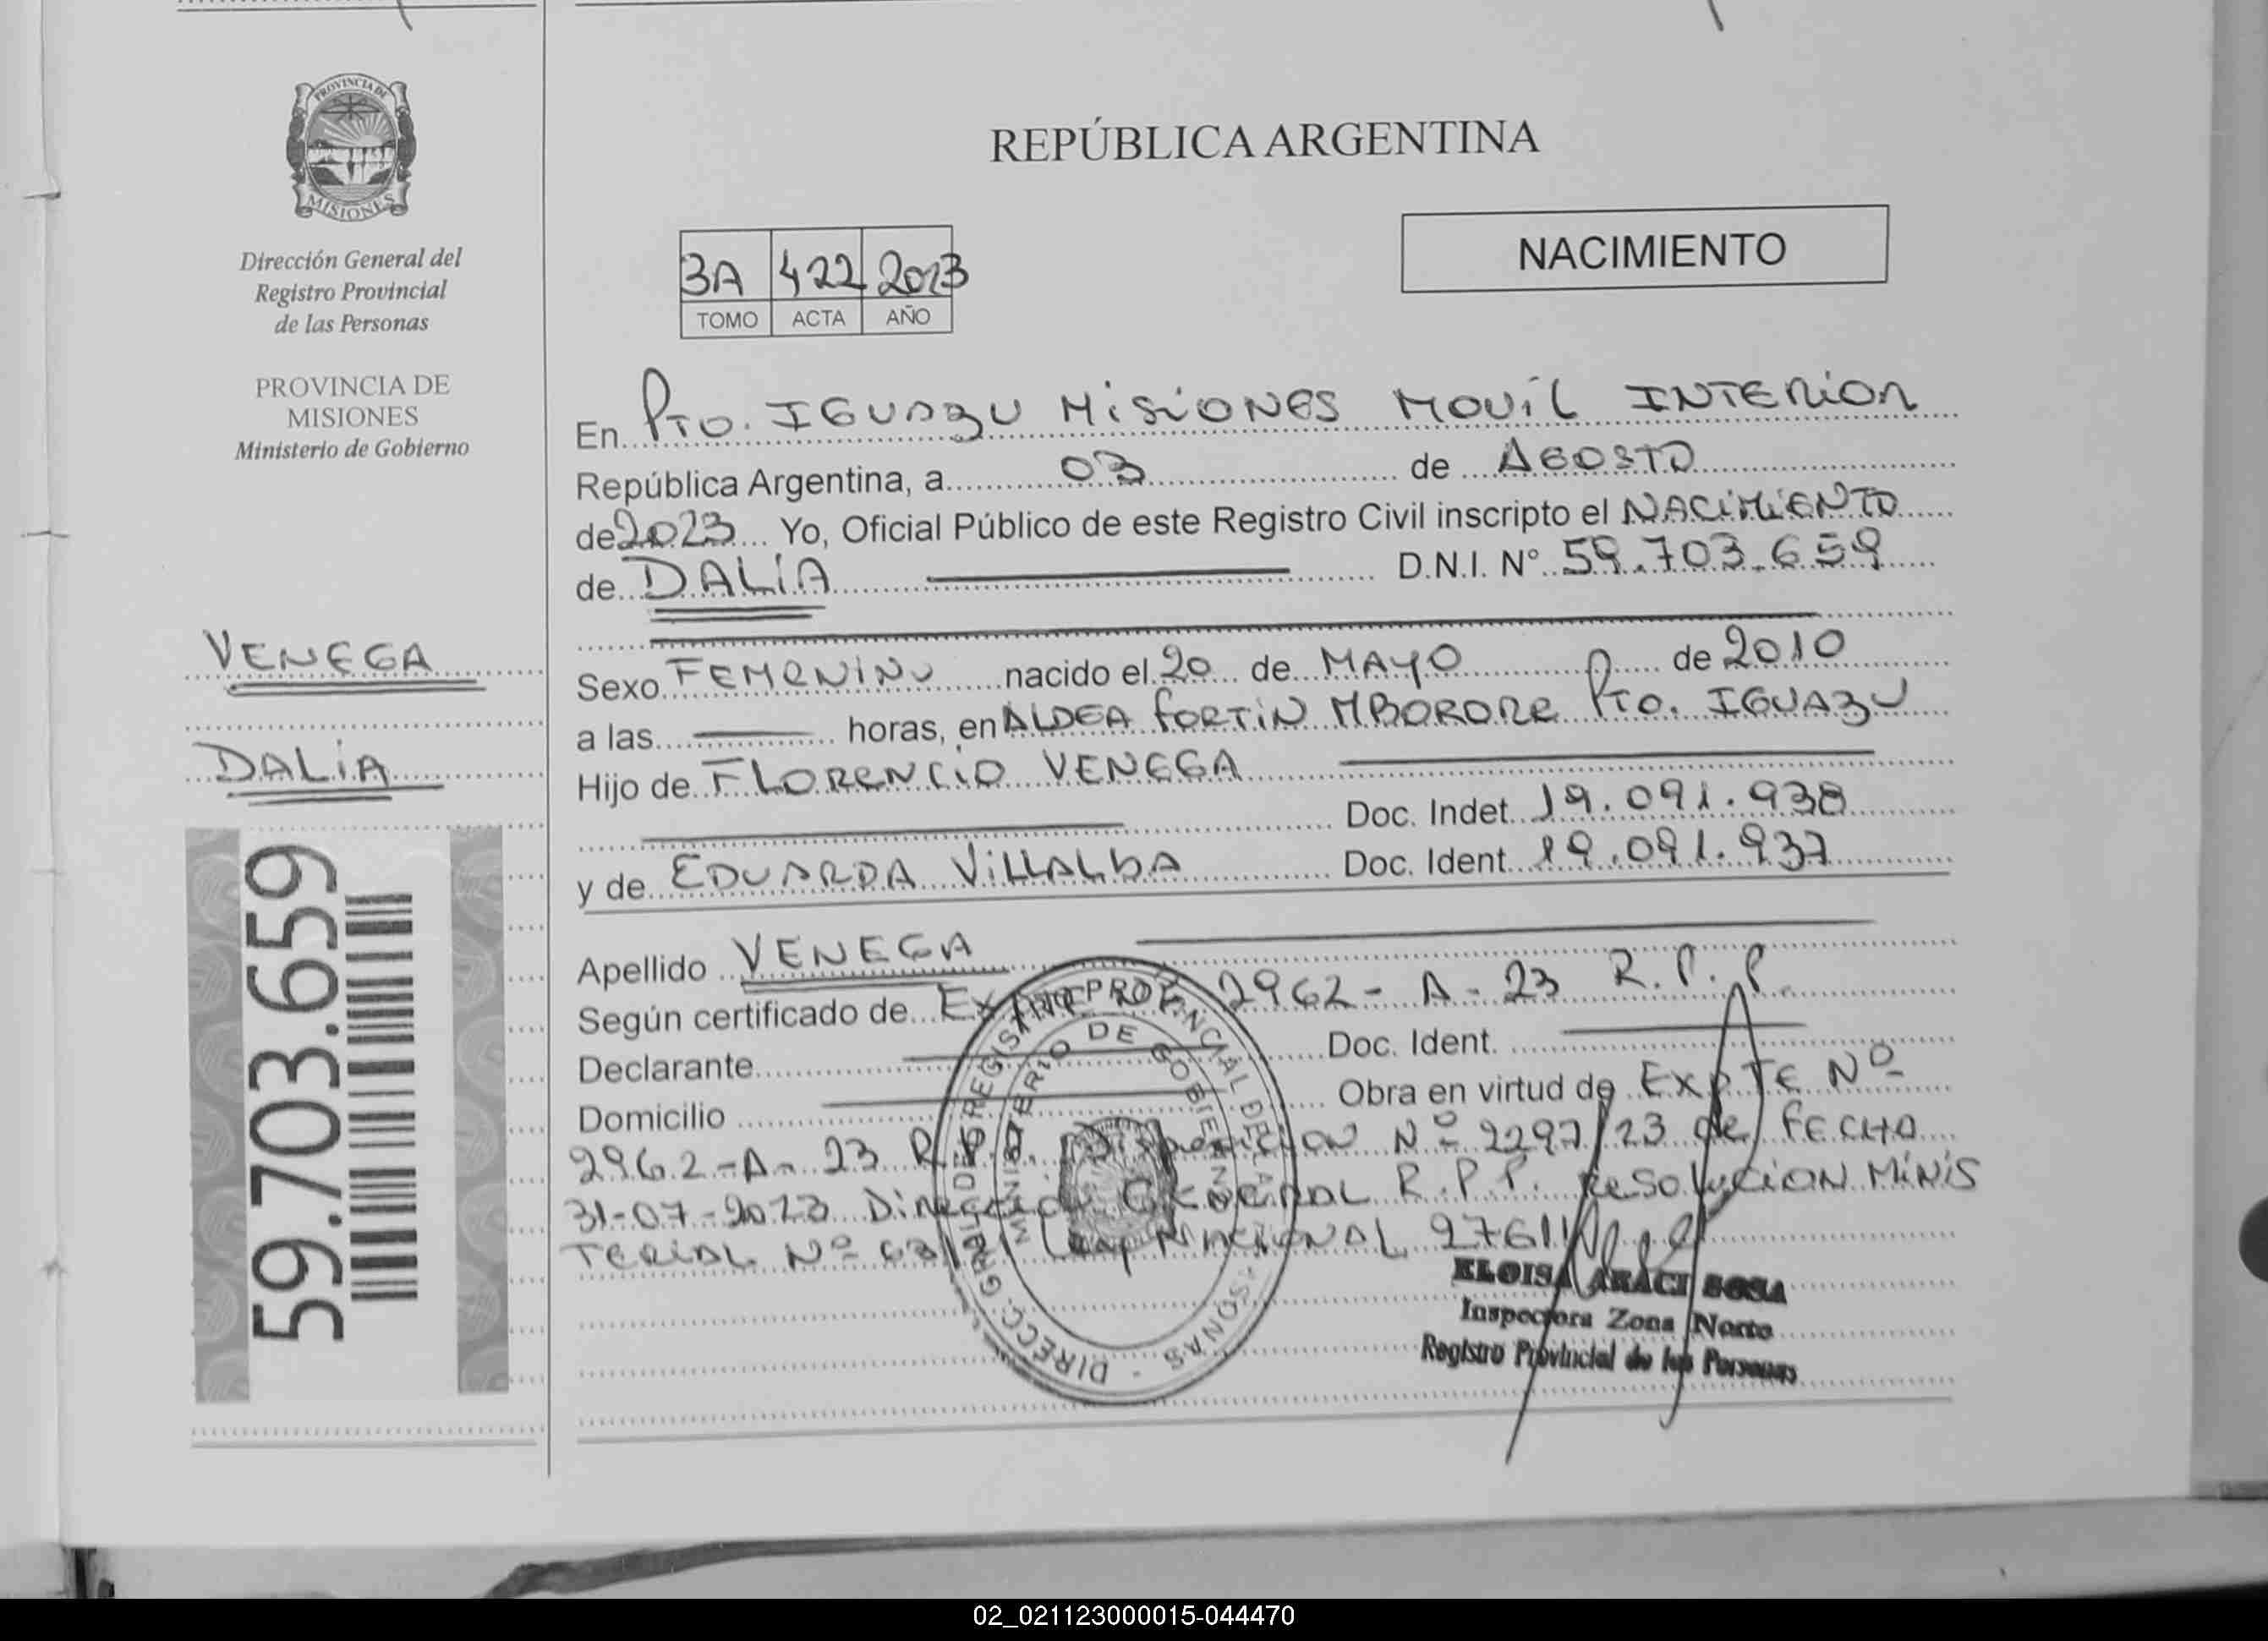 PROVINCIA DE
MISIONES
Dirección General del
Registro Provincial
de las Personas
PROVINCIA DE
MISIONES
Ministerio de Gobierno
VENEGA
DALIA
59.703.659
REPÚBLICA ARGENTINA
NACIMIENTO
3A 422 2023
TOMO ACTA AÑO
En Pto. IGUAZU MISIONES MOVIL INTERIOR
República Argentina, a 03 de AGOSTO
de 2023 Yo, Oficial Público de este Registro Civil inscripto el NACIMIENTO
de DALIA D.N.I. Nº 59.703.659
Sexo FEMENINO nacido el 20 de MAYO de 2010
a las horas, en ALDEA FORTIN MBORORE Pto. IGUAZU
Hijo de FLORENCIO VENEGA
Doc. Indet. 19.091.938
y de EDUARDA VILLALBA Doc. Ident. 19.091.937
Apellido VENEGA
Según certificado de 2962-A-23 R.P.P.
Declarante Doc. Ident.
Domicilio Obra en virtud de EXPTE Nº
2962-A-23 R.P.P. Disposición Nº 2297/23 de FECHA
31-07-2023 Dirección General R.P.P. Resolución MINIS
TERIAL Nº
DIRECC. GRAL. DEL REGISTRO PROVINCIAL DE LAS PERSONAS
MINISTERIO DE GOBIERNO
ELOISA ARACI SOSA
Inspectora Zona Norte
Registro Provincial de las Personas
02_021123000015-044470